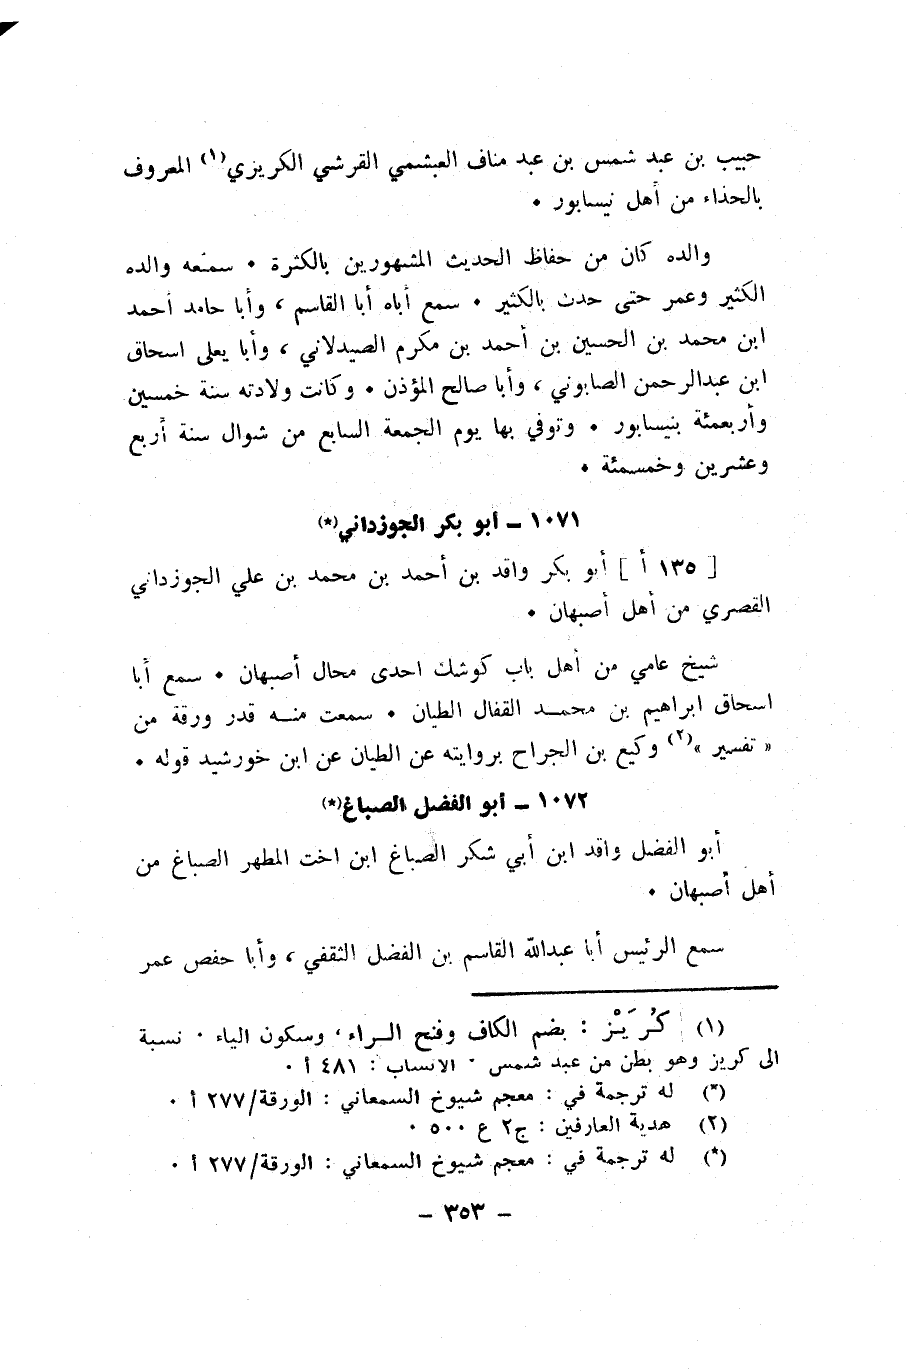 حبيب بن عبد شمس بن عبد مناف العبشمي القرشي الكريزي(١) المعروف
بالحذاء من أهل نيسابور ٠
والده كان من حفاظ الحديث المشهورين بالكثرة ٠ سمعه والده
الكثير وعمر حتى حدث بالكثير ٠ سمع أباه أبا القاسم ، وأبا حامد أحمد
ابن محمد بن الحسين بن أحمد بن مكرم الصيدلاني ، وأبا يعلى اسحاق
ابن عبدالرحمن الصابوني ، وأبا صالح المؤذن ٠ وكانت ولادته سنة خمسين
وأربعمئة بنيسابور ٠ وتوفي بها يوم الجمعة السابع من شوال سنة أربع
وعشرين وخمسمئة ٠
١٠٧١ – أبو بكر الجوزداني(*)
[ ١٣٥ أ ] أبو بكر واقد بن أحمد بن محمد بن علي الجوزداني
القصري من أهل أصبهان ٠
شيخ عامي من أهل باب كوشك احدى محال أصبهان ٠ سمع أبا
اسحاق ابراهيم بن محمــد القفال الطيان ٠ سمعت منــه قدر ورقة من
« تفسير »(٢) وكيع بن الجراح بروايته عن الطيان عن ابن خورشيد قوله ٠
١٠٧٢ – أبو الفضل الصباغ(*)
أبو الفضل واقد ابن أبي شكر الصباغ ابن اخت المطهر الصباغ من
أهل أصبهان ٠
سمع الرئيس أبا عبدالله القاسم بن الفضل الثقفي ، وأبا حفص عمر
(١) كُرَيْز : بضم الكاف وفتح الــراء ، وسكون الياء ٠ نسبة
الى كريز وهو بطن من عبد شمس ٠ الانساب : ٤٨١ أ ٠
(*) له ترجمة في : معجم شيوخ السمعاني : الورقة/٢٧٧ أ ٠
(٢) هدية العارفين : ج٢ ع ٥٠٠ ٠
(*) له ترجمة في : معجم شيوخ السمعاني : الورقة/٢٧٧ أ ٠
– ٣٥٣ –